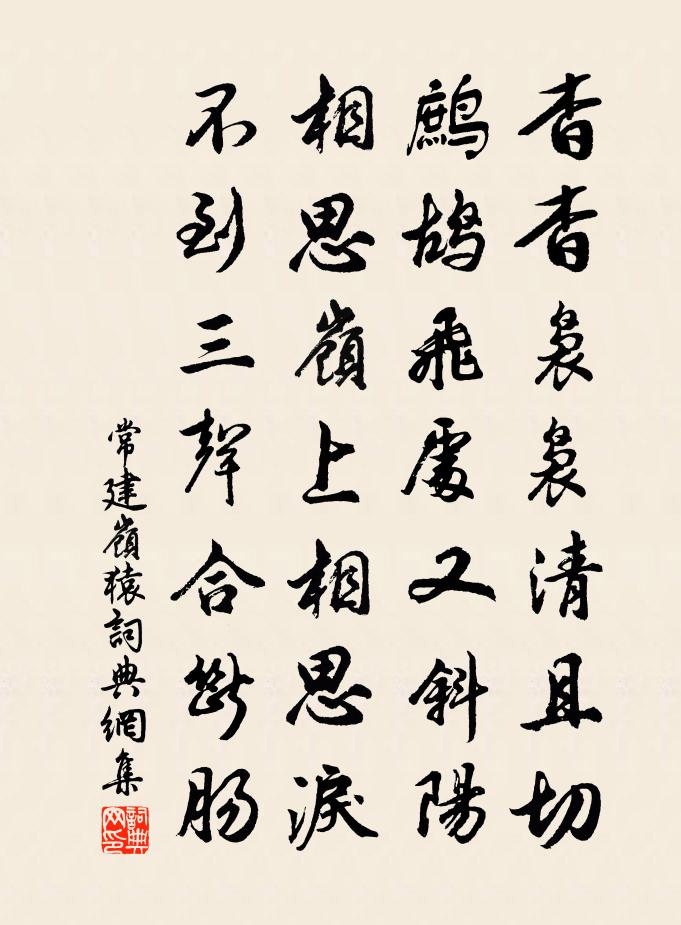 杳杳裊裊清且切
鷓鴣飛處又斜陽
相思嶺上相思淚
不到三聲合斷腸
常建嶺猿詞典網集
詞典網印